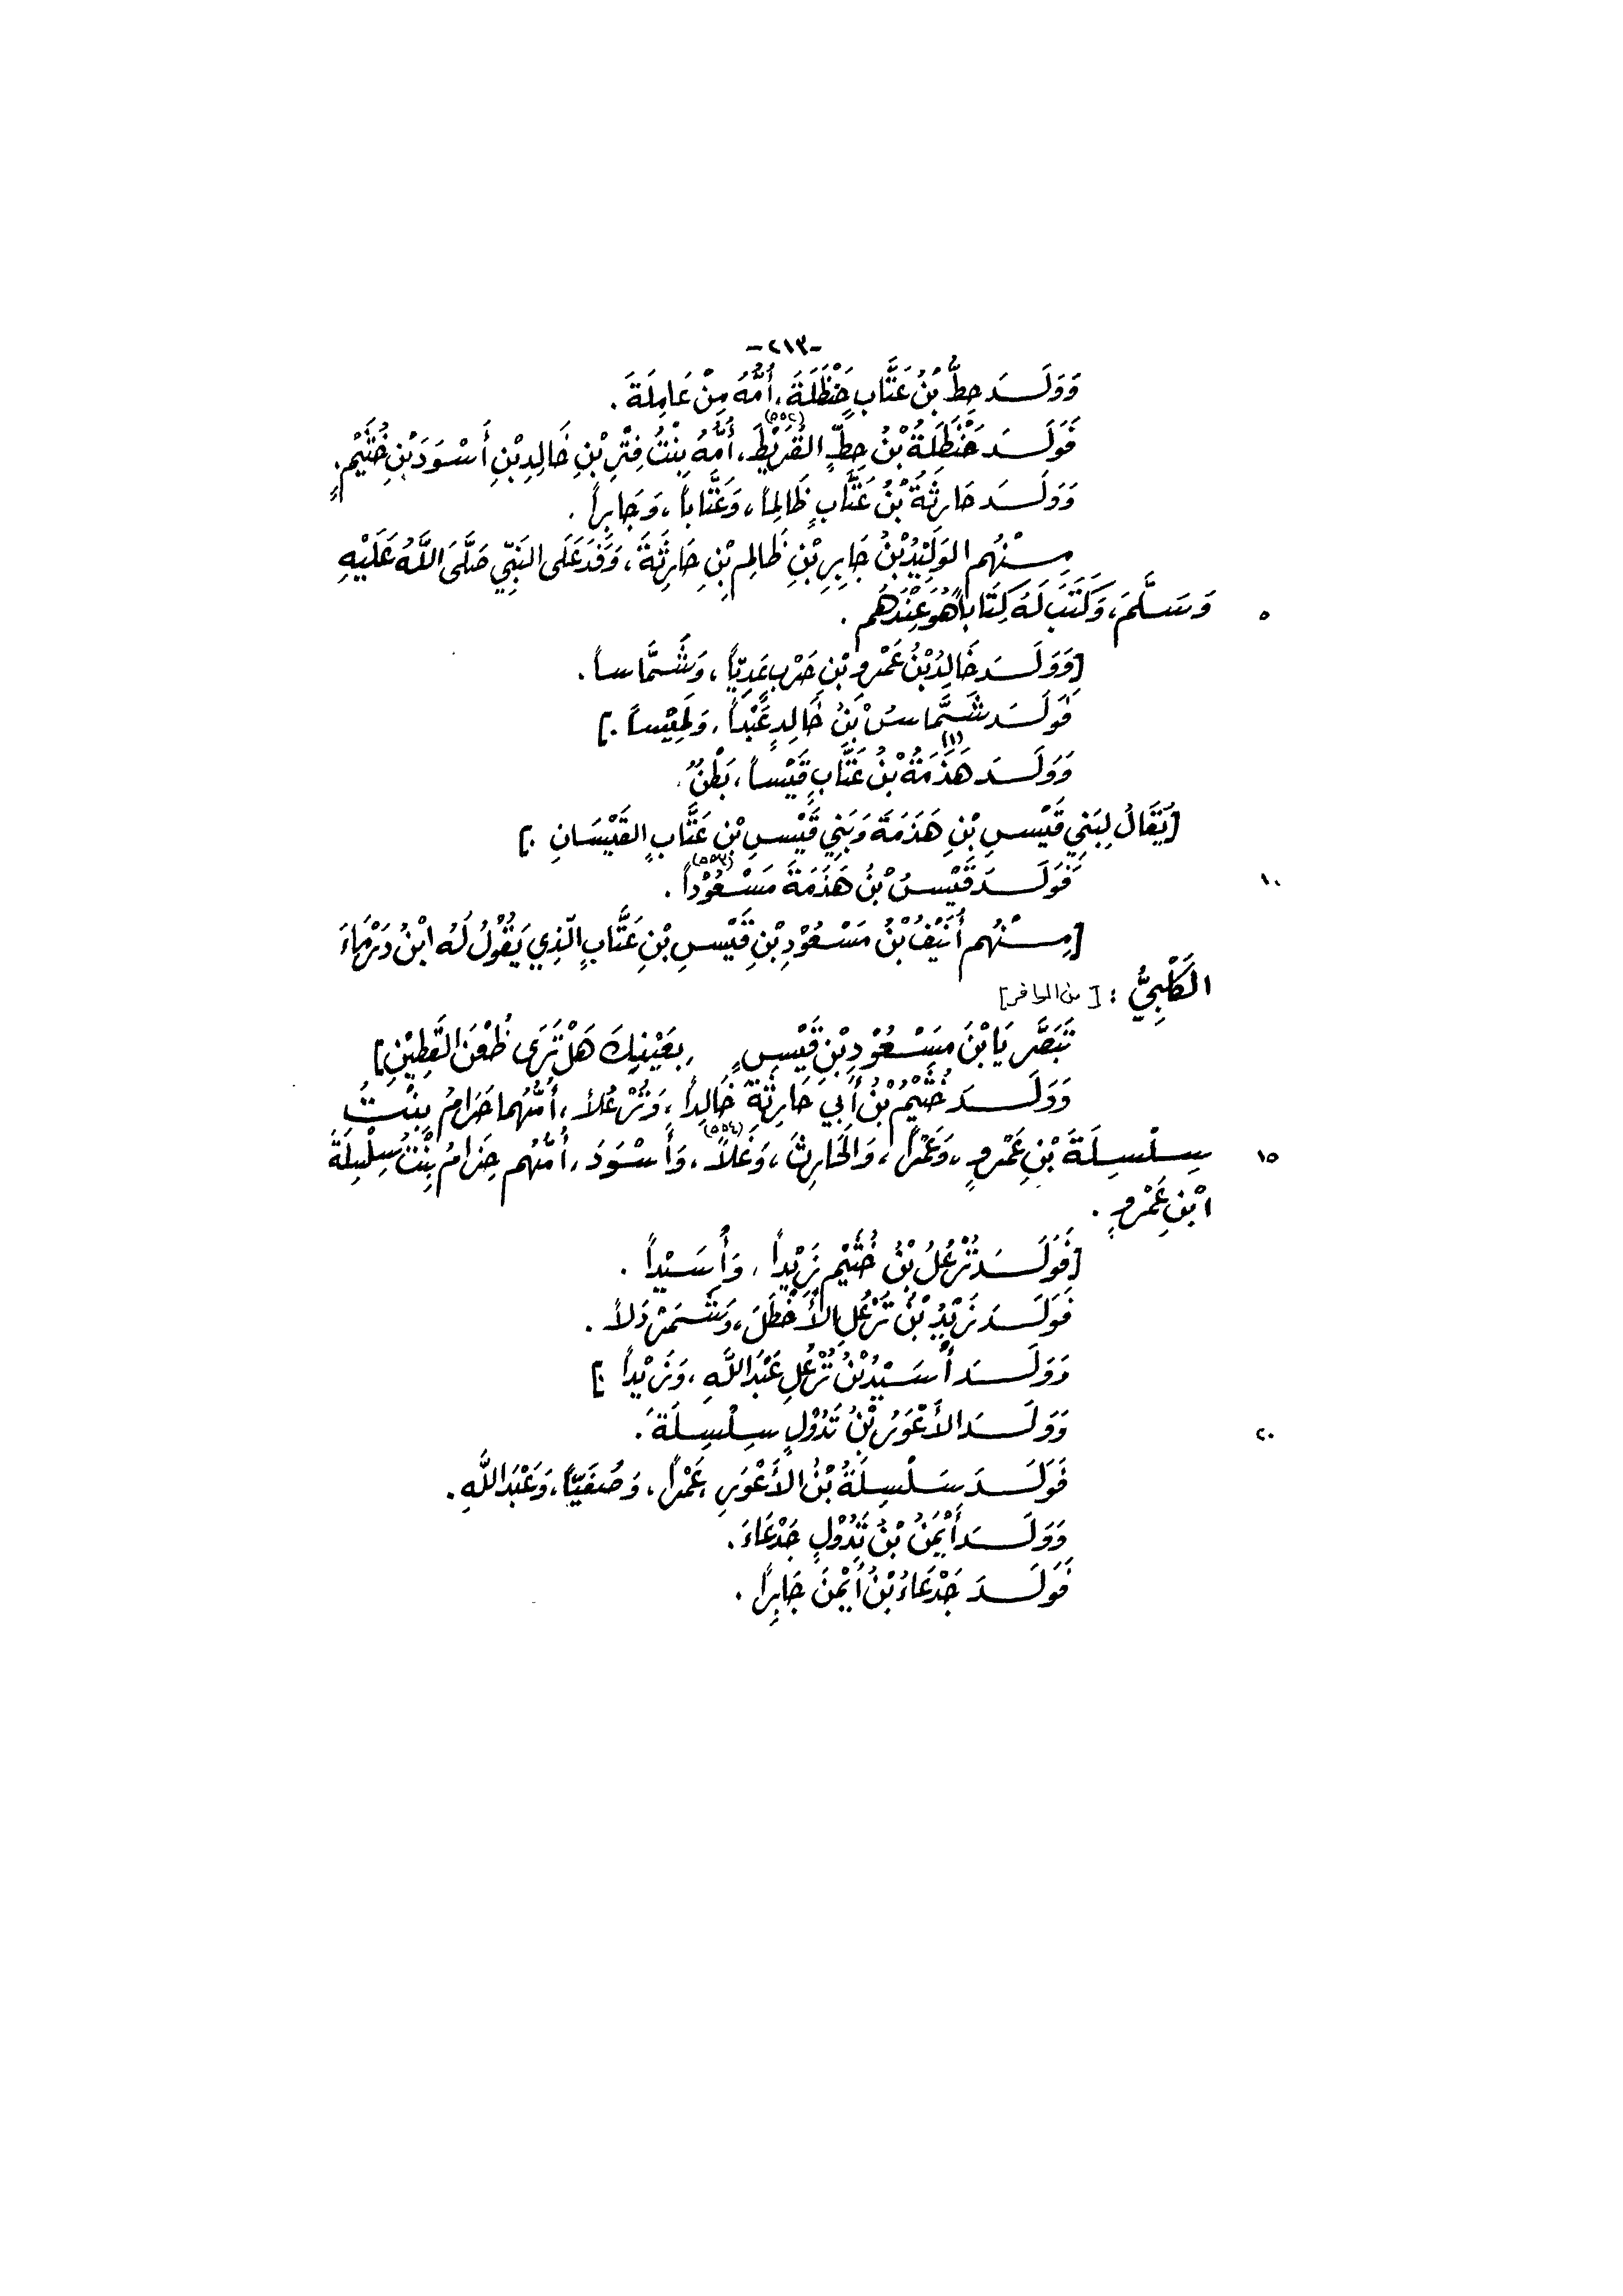 -٢١٣-
وَوَلَــدَ حِطُّ بْنُ عَتَّابٍ حَنْظَلَةَ، أُمُّهُ مِنْ عَامِلَةَ .
فَوَلَــدَ حَنْظَلَةُ بْنُ حِطٍّ القُرَيْطَ(٥٥٢)، أُمُّهُ بِنْتُ فِتْرِ بْنِ خَالِدِ بْنِ أَسْوَدَ بْنِ خُثَيْمٍ.
وَوَلَــدَ حَارِثَةُ بْنُ عَتَّابٍ ظَالِماً، وَعَتَّاباً، وَجَابِراً .
مِــنْهُم الوَلِيْدُ بْنُ جَابِرِ بْنِ ظَالِمِ بْنِ حَارِثَةَ، وَفَدَ عَلَى النَبِّيِ صَلَّى اللَّهُ عَلَيْهِ
وَسَلَّمَ، وَكَتَبَ لَهُ كِتَاباً هُوَ عِنْدَهُم . ٥
[وَوَلَــدَ خَالِدُ بْنُ عَمْرِو بْنِ حَرْبٍ عَدِيّاً، وَشَمَّاساً .
فَوَلَــدَ شَمَّاسُ بْنُ خَالِدٍ عَبْداً، وَلَمِيْساً .]
وَوَلَــدَ هَذَمَةُ(١) بْنُ عَتَّابٍ قَيْساً، بَطْنٌ.
[يُقَالُ لِبَنِي قَيْسِ بْنِ هَذَمَةَ وَبَنِي قَيْسِ بْنِ عَتَّابٍ القَيْسَانِ .]
فَوَلَــدَ قَيْسُ بْنُ هَذَمَةَ مَسْعُوْداً(٥٥٣) . ١٠
[مِــنْهُم أُنَيْفُ بْنُ مَسْعُوْدِ بْنِ قَيْسِ بْنِ عَتَّابٍ الّذِي يَقُوْلُ لَهُ ابْنُ دَرْمَاءَ
الكَلْبِيُّ : [من الوافر]
تَبَصَّر يَا بْنَ مَسْعُوْدِ بْنِ قَيْسٍ بِعَيْنِكَ هَلْ تَرَى ظُعْنَ القَطِيْنِ]
وَوَلَــدَ خُثَيْمُ بْنُ أَبِي حَارِثَةَ خَالِداً، وَثُرْعُلاً، أُمُّهُمَا حَرَامُ بِنْتُ
سِلْسِلَةَ بْنِ عَمْرٍو، وَعَمْراً، وَالحَارِثَ، وَعَلاً(٥٥٤)، وَأَسْوَدَ، أُمُّهُم حِزَامُ بِنْتُ سِلْسِلَةَ ١٥
ابْنِ عَمْرٍو .
[فَوَلَــدَ ثُرْعُلُ بْنُ خُثَيْمٍ زَيْداً، وَأُسَيْداً .
فَوَلَــدَ زَيْدُ بْنُ ثُرْعُلٍ الأَخْطَلَ، وَشَمَرْدَلاً .
وَوَلَــدَ أُسَيْدُ بْنُ ثُرْعُلِ عَبْدَ اللَّهِ، وَزَيْداً .]
وَوَلَــدَ الأَعْوَرُ بْنُ تَدُوْلٍ سِلْسِلَةَ . ٢٠
فَوَلَــدَ سَلْسِلَةُ بْنُ الأَعْوَرِ عَمْراً، وَصُنَفِيّاً، وَعَبْدَ اللَّهِ.
وَوَلَــدَ أَيْمَنُ بْنُ تَدُوْلٍ جَدْعَاءَ.
فَوَلَــدَ جَدْعَاءُ بْنُ أَيْمَنَ جَابِراً .